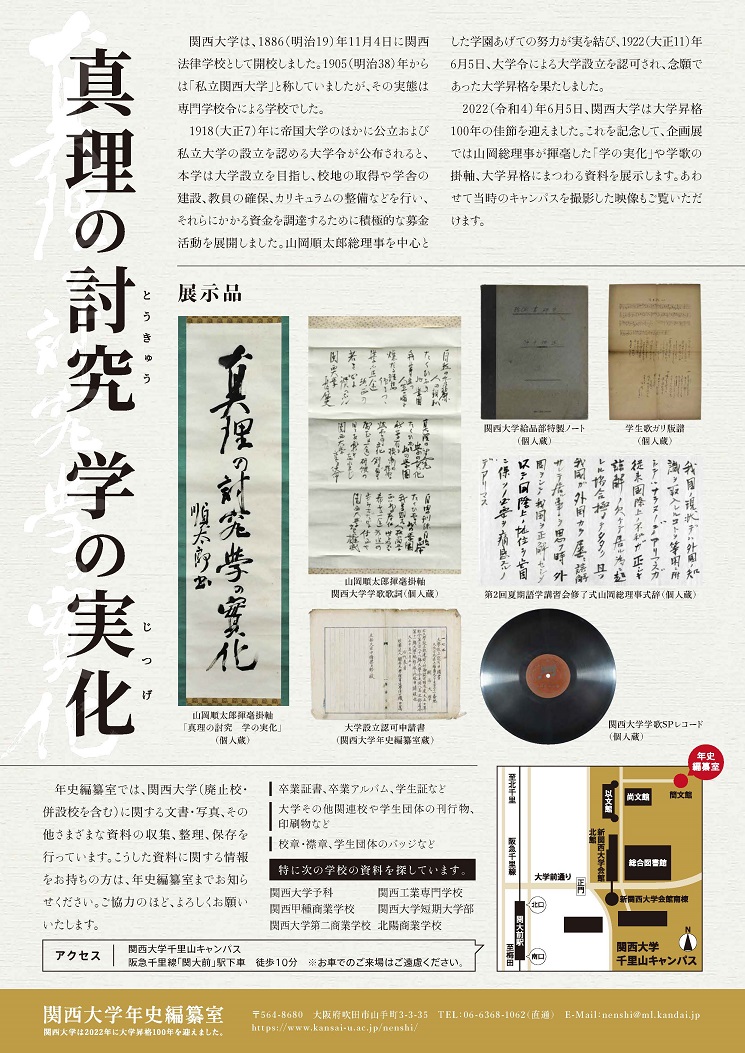 真理の討究 学の実化
とうきゅう
じつげ
関西大学は、1886(明治19)年11月4日に関西
法律学校として開校しました。1905(明治38)年から
は「私立関西大学」と称していましたが、その実態は
専門学校令による学校でした。
1918(大正7)年に帝国大学のほかに公立および
私立大学の設立を認める大学令が公布されると、
本学は大学設立を目指し、校地の取得や学舎の
建設、教員の確保、カリキュラムの整備などを行い、
それらにかかる資金を調達するために積極的な募金
活動を展開しました。山岡順太郎総理事を中心と
した学園あげての努力が実を結び、1922(大正11)年
6月5日、大学令による大学設立を認可され、念願で
あった大学昇格を果たしました。
2022(令和4)年6月5日、関西大学は大学昇格
100年の佳節を迎えました。これを記念して、企画展
では山岡総理事が揮毫した「学の実化」や学歌の
掛軸、大学昇格にまつわる資料を展示します。あわ
せて当時のキャンパスを撮影した映像もご覧いただ
けます。
展示品
真理の討究學の實化
順太郎書
山岡順太郎揮毫掛軸
「真理の討究 学の実化」
(個人蔵)
山岡順太郎揮毫掛軸
関西大学学歌歌詞(個人蔵)
関西大学給品部特製ノート
(個人蔵)
学生歌ガリ版譜
(個人蔵)
第2回夏期語学講習会修了式山岡総理事式辞(個人蔵)
大学設立認可申請書
(関西大学年史編纂室蔵)
関西大学学歌SPレコード
(個人蔵)
年史編纂室では、関西大学(廃止校・
併設校を含む)に関する文書・写真、その
他さまざまな資料の収集、整理、保存を
行っています。こうした資料に関する情報
をお持ちの方は、年史編纂室までお知ら
せください。ご協力のほど、よろしくお願い
いたします。
卒業証書、卒業アルバム、学生証など
大学その他関連校や学生団体の刊行物、
印刷物など
校章・襟章、学生団体のバッジなど
特に次の学校の資料を探しています。
関西大学予科 関西工業専門学校
関西甲種商業学校 関西大学短期大学部
関西大学第二商業学校 北陽商業学校
アクセス
関西大学千里山キャンパス
阪急千里線「関大前」駅下車 徒歩10分 ※お車でのご来場はご遠慮ください。
年史
編纂室
至北千里
阪急千里線
以文館
尚文館
簡文館
新関西大学会館
北棟
総合図書館
大学前通り
正門
新関西大学会館南棟
北口
関大前駅
南口
至梅田
N
関西大学
千里山キャンパス
関西大学年史編纂室
関西大学は2022年に大学昇格100年を迎えました。
〒564-8680 大阪府吹田市山手町3-3-35 TEL:06-6368-1062(直通) E-Mail:nenshi@ml.kandai.jp
https://www.kansai-u.ac.jp/nenshi/